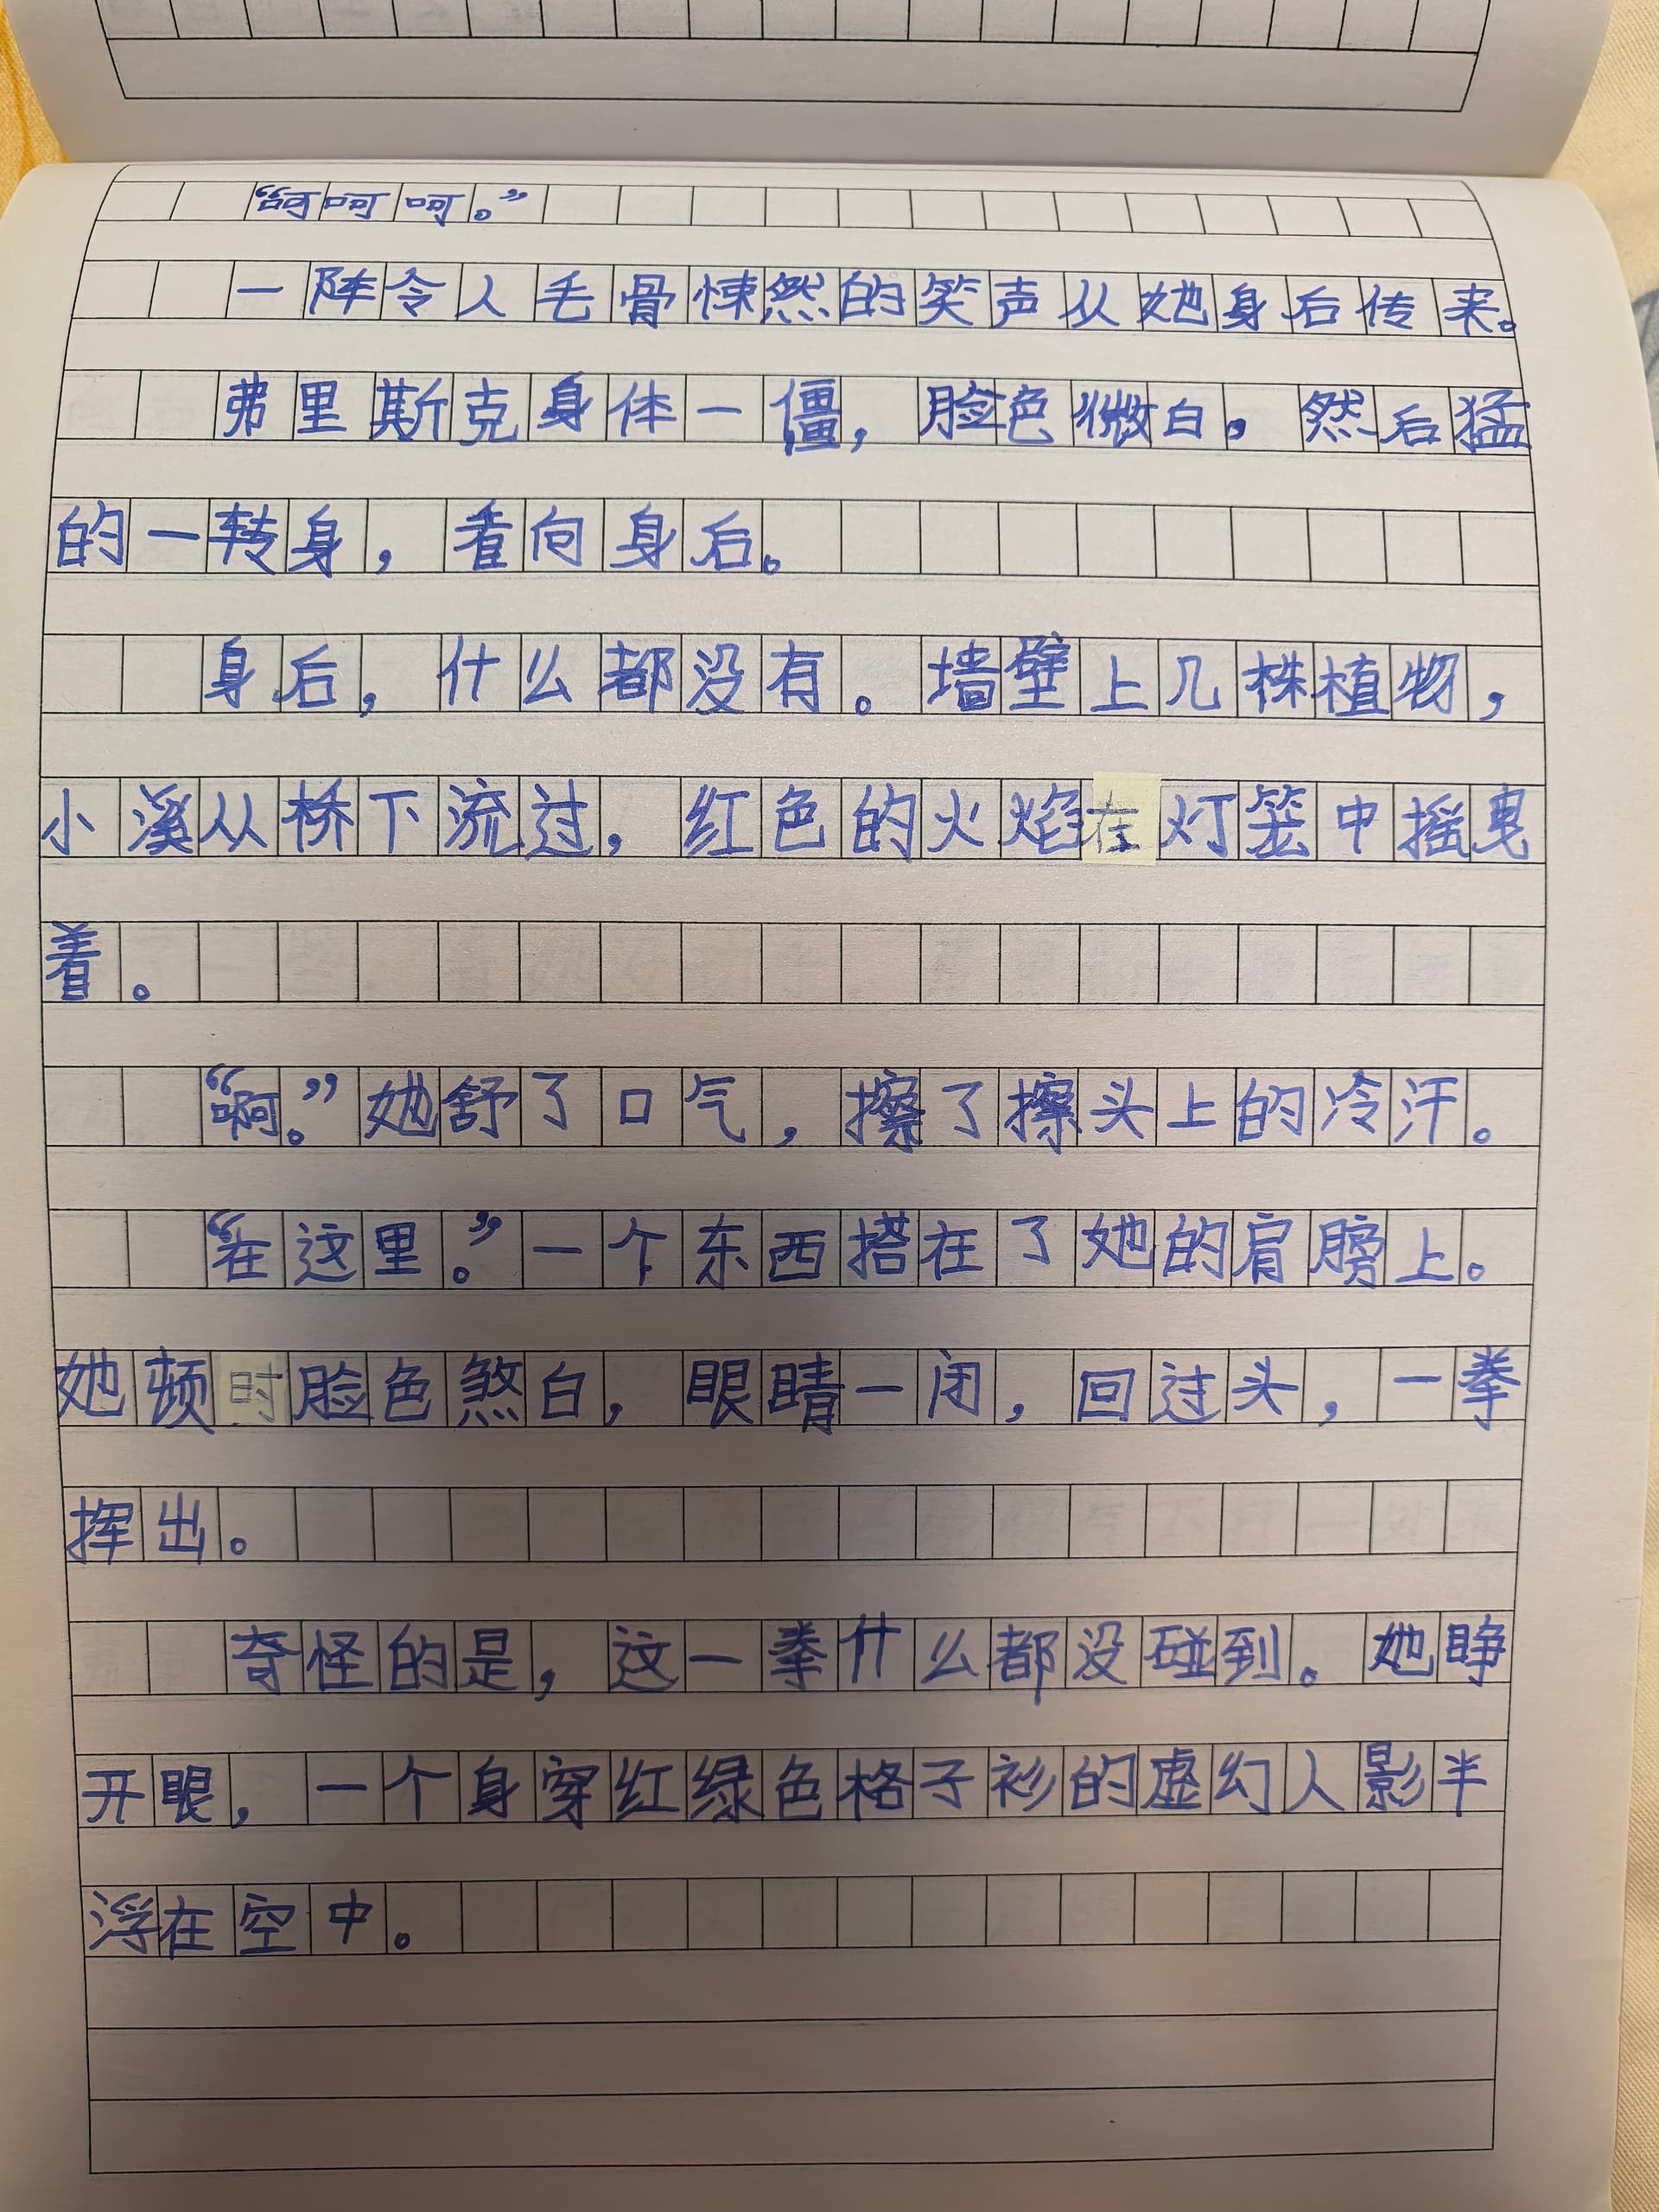 “呵呵呵。”
一阵令人毛骨悚然的笑声从她身后传来。
弗里斯克身体一僵，脸色微白。然后猛
的一转身，看向身后。
身后，什么都没有。墙壁上几株植物，
小溪从桥下流过，红色的火焰在灯笼中摇曳
着。
“啊。”她舒了口气，擦了擦头上的冷汗。
“在这里。”一个东西搭在了她的肩膀上。
她顿时脸色煞白，眼睛一闭，回过头，一拳
挥出。
奇怪的是，这一拳什么都没碰到。她睁
开眼，一个身穿红绿色格子衫的虚幻人影半
浮在空中。